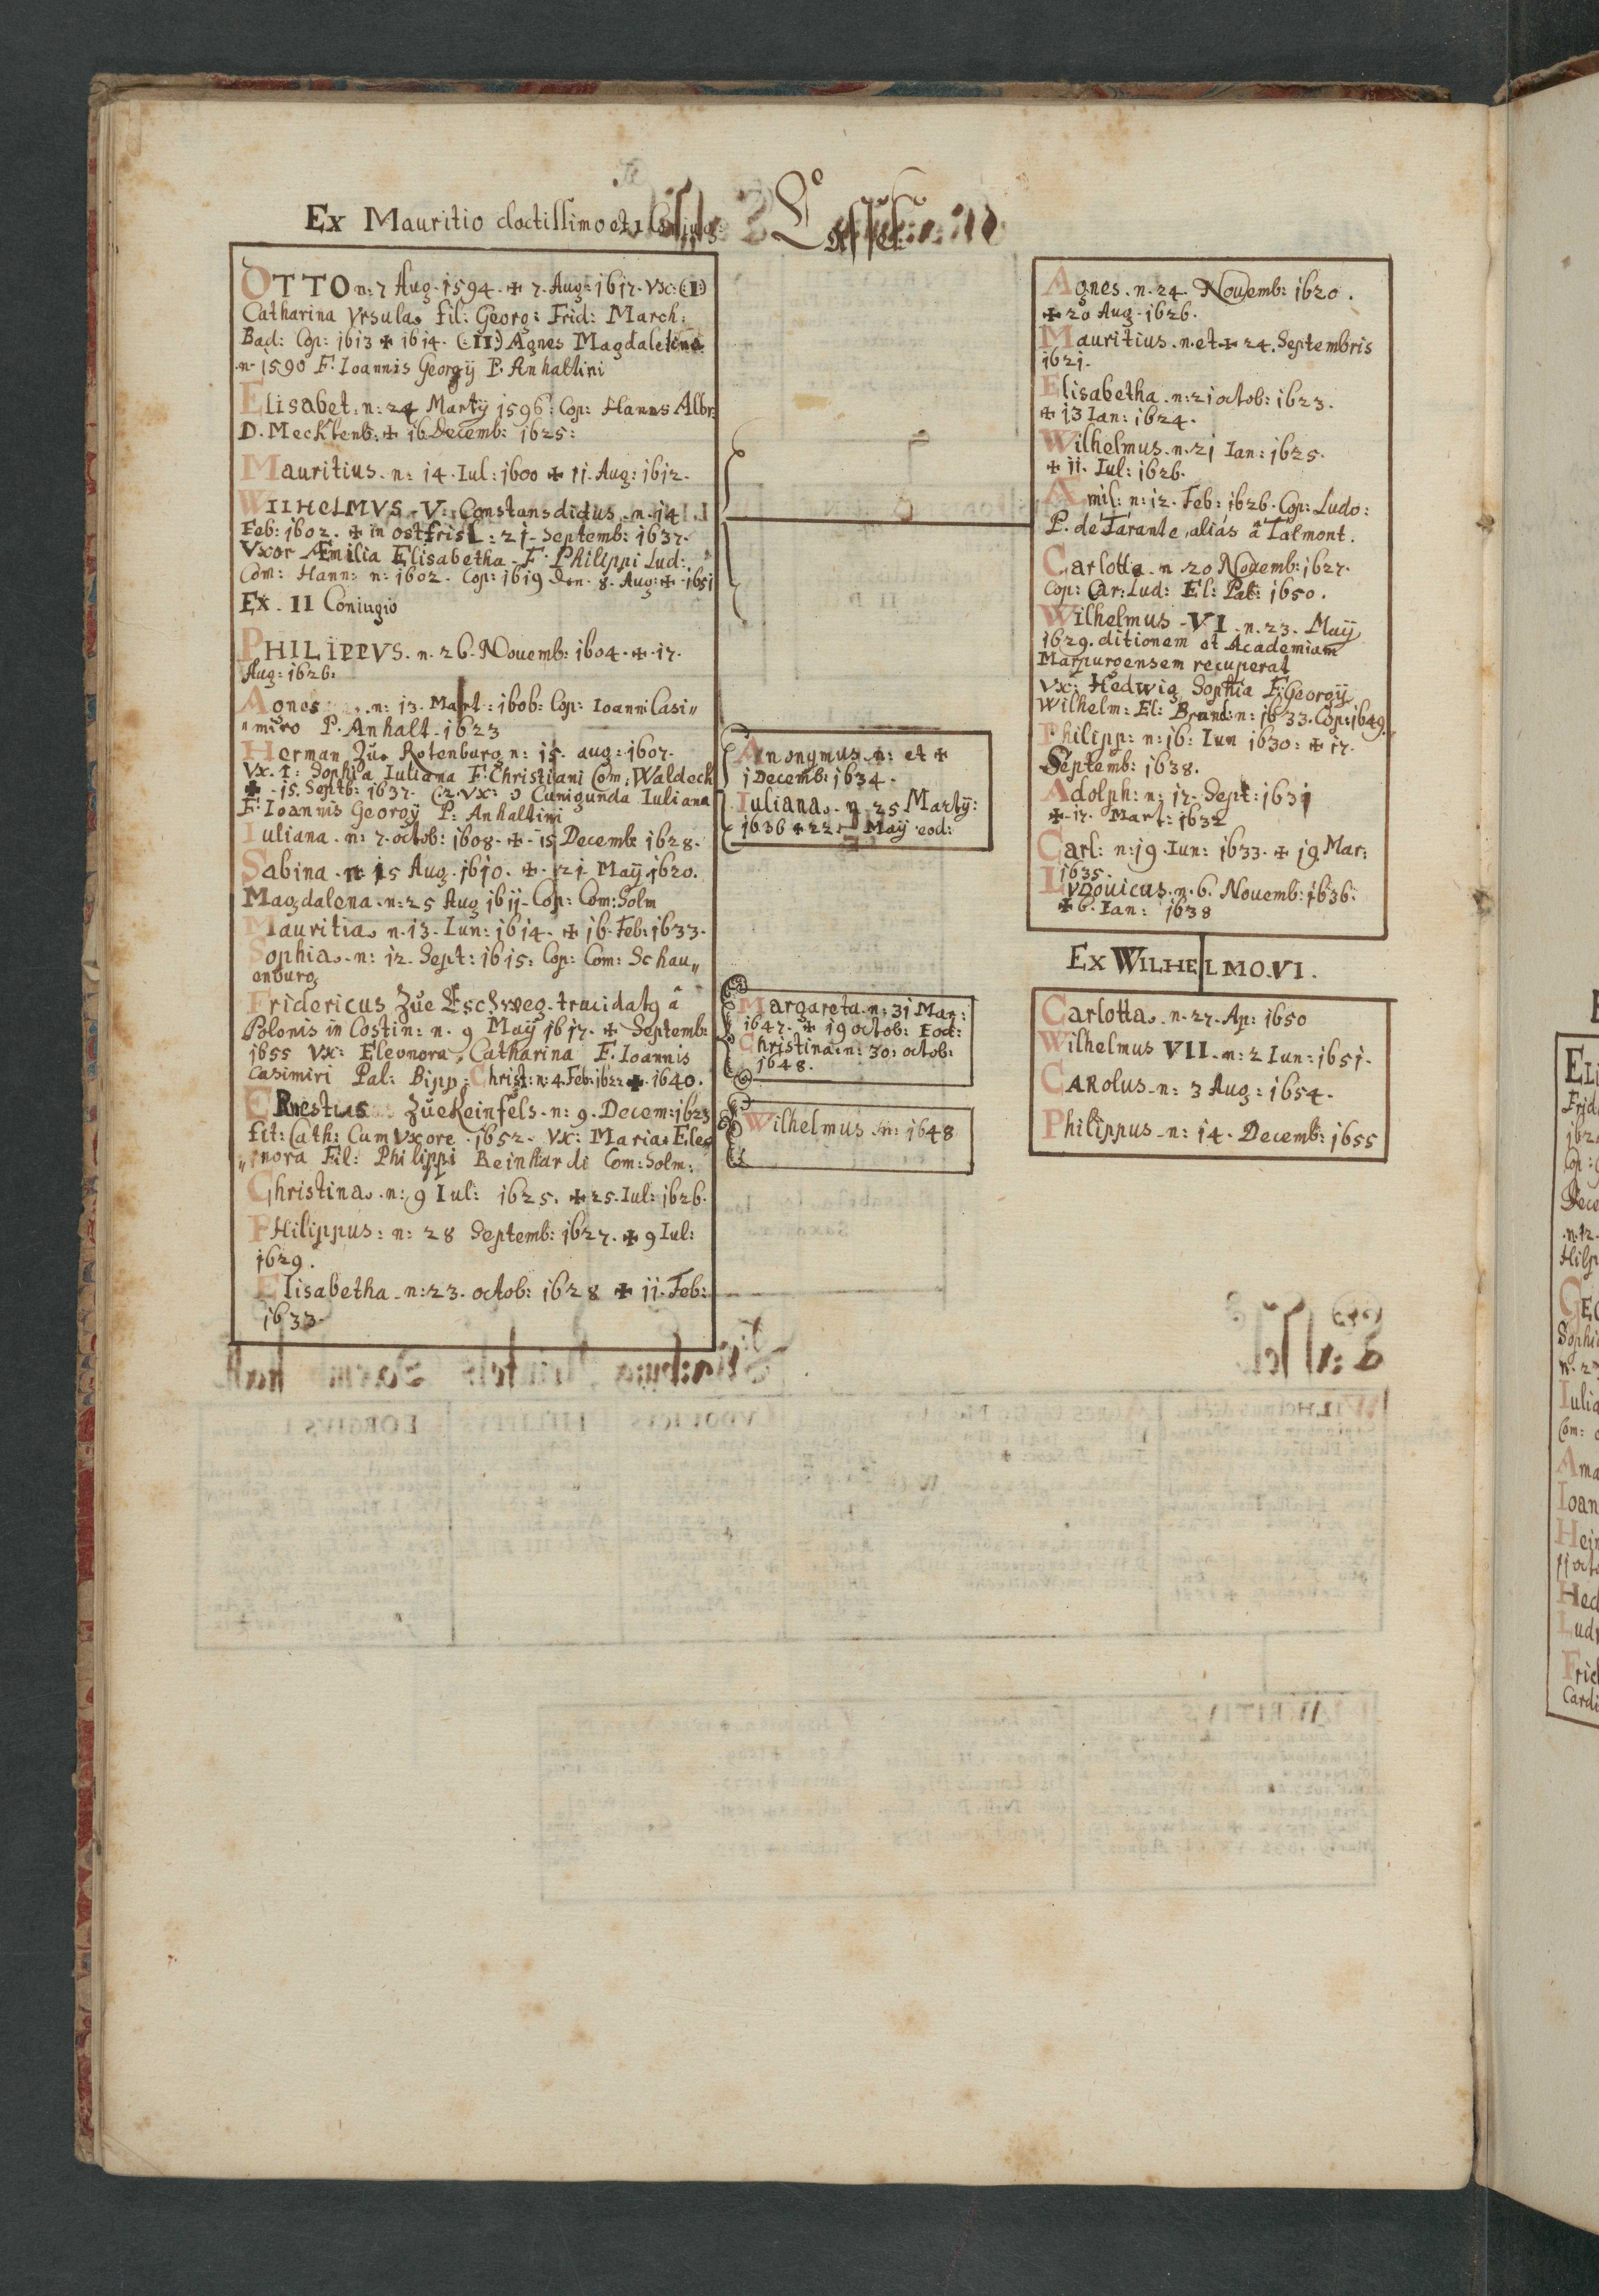 Ex Mauritio doctissimo et 1
OTTO n: 7 Aug. 1594. ✠ 7. Aug: 1617. Vx: (:I:)
Catharina Vrsula fil: Georg: Frid: March:
Bad: Cop: 1613 ✠ 1614. (:II:) Agnes Magdalena
.n. 1590 F: Ioannis Georgÿ P: Anhaltini
Elisabet: n: 24 Martÿ 1596: Cop: Hanns Albr:
D. Mecklenb: ✠ 16 Decemb: 1625:
Mauritius. n: 14. Iul: 1600 ✠ 11. Aug: 1612.
WIlHelMVS. V: Constans dictus. n. 14
Feb: 1602. ✠ in ostfrisl: 21. Septemb: 1637.
Vxor Æmilia Elisabetha. F. Philippi Lud:
Com: Hann: n: 1602. Cop: 1619 den. 8. Aug: ✠ 1651
Ex. II Coniugio
PHILIPPVS. n. 26. Nouemb: 1604. ✠. 17.
Aug: 1626.
Agnes .n: 13. Mart: 1606: Cop: Ioanni Casi„
„miro P. Anhalt. 1623
Herman Zue Rotenburg n: 15. aug: 1607.
Vx. 1: Sophia Iuliana F. Christiani Com: Waldeck
✠. 15. Septb: 1637. (2. Vx: Cunigunda Iuliana
F: Ioannis Georgÿ P: Anhaltini
Iuliana. n: 7. octob: 1608. ✠. 15 Decemb 1628.
Sabina. n: 15 Aug. 1610. ✠. 21. Maÿ. 1620.
Magdalena. n: 25 Aug 1611. Cop: Com: Solm
Mauritia. n. 13. Iun: 1614. ✠ 16. Feb: 1633.
Sophia. n: 12. Sept: 1615: Cop: Com: Schau„
enburg
Fridericus Zue Eschweg. trucidatq â
Polonis in Costin: n. 9 Maÿ 1617. ✠ Septemb:
1655 Vx: Eleonora Catharina F. Ioannis
Casimiri Pal: Bipp: Christ: n: 4. Feb: 1622 ✠. 1640.
ERnestus Zue Reinfels. n: 9. Decem: 1623
fit: Cath: Cum Vxore. 1652. Vx: Maria Eleo
„nora Fil: Philippi Reinhardi Com: Solm:
Christina. n: 9 Iul: 1625. ✠ 25. Iul: 1626.
PHilippus: n: 28 Septemb: 1627. ✠ 9 Iul:
1629.
Elisabetha. n: 23. octob: 1628 ✠ 11. Feb:
1633.
Anonymus. n: et ✠
1 Decemb: 1634.
Iuliana. n. 25 Martÿ:
1636 ✠ 22 Maÿ eod:
Margareta. n: 31 Mar:
1647. ✠ 19 octob: Eod:
Christina. n: 30: octob:
1648.
Wilhelmus. n: 1648
Agnes. n. 24. Nouemb: 1620.
✠ 20 Aug. 1626.
Mauritius. n. et ✠ 24. Septembris
1621.
Elisabetha. n: 21 octob: 1623.
✠ 13 Ian: 1624.
Wilhelmus. n. 21 Ian: 1625.
✠ 11. Iul: 1626.
Æmil: n: 12. Feb: 1626. Cop: Ludo:
P. de Tarante, aliás â Talmont.
Carlotta. n 20 Nouemb: 1627.
Cop: Car: Lud: El: Pal: 1650.
Wilhelmus. VI. n. 23. Maÿ
1629. ditionem et Academiam
Marpurgensem recuperat
Vx: Hedwig Sophia F: Georgÿ
Wilhelm: El: Brand: n: 1633. Cop: 1649.
Philipp: n: 16: Iun 1630: ✠ 17.
Septemb: 1638.
Adolph: n: 17. Sept: 1631
✠. 17. Mart: 1632
Carl: n: 19. Iun: 1633. ✠ 19 Mar:
1635.
LVDouicus. n. 6. Nouemb: 1636.
✠ 6. Ian: 1638
Ex WILHELMO. VI.
Carlotta. n. 27. Ap: 1650
Wilhelmus VII. n: 2 Iun: 1651.
CARolus. n: 3 Aug: 1654.
Philippus. n: 14. Decemb: 1655